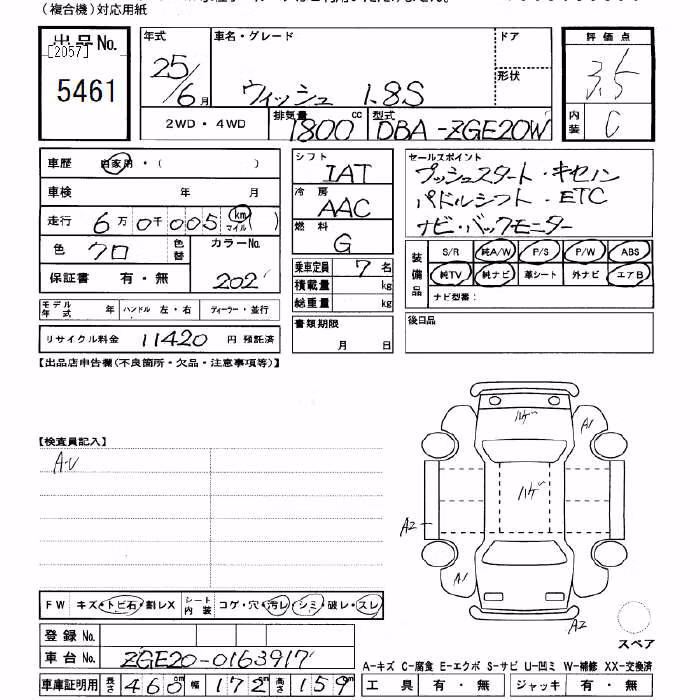 （複合機）対応用紙
出品No. 年式 車名・グレード ドア 評価点
[2057]
5461 25/6月 ウィッシュ 1.8S 形状 3.5
2WD・4WD 排気量 1800cc 型式 DBA-ZGE20W 内装 C
車歴 自家用・( ) シフト IAT セールスポイント
車検 年 月 冷房 AAC プッシュスタート・キセノン
走行 6万0千005 km マイル ( ) 燃料 G パドルシフト・ETC
ナビ・バックモニター
色 クロ 色替 カラーNo. 乗車定員 7名 装備品 S/R 純A/W P/S P/W ABS
保証書 有・無 202 積載量 kg 純TV 純ナビ 革シート 外ナビ エアB
総重量 kg ナビ型番：
モデル年式 年 ハンドル 左・右 ディーラー・並行 書類期限 後日品
リサイクル料金 11420 円 預託済 月 日
【出品店申告欄(不良箇所・欠品・注意事項等)】
ハゲ A1
【検査員記入】
A-U
ハゲ
A2
A1
FW キズ・トビ石・割レX シート内装 コゲ・穴・汚レ・シミ・破レ・スレ
A2
登録No. スペア
車台No. ZGE20-0163917
A-キズ C-腐食 E-エクボ S-サビ U-凹ミ W-補修 XX-交換済
車庫証明用 長さ 460cm 幅 172cm 高さ 159cm 工具 有・無 ジャッキ 有・無